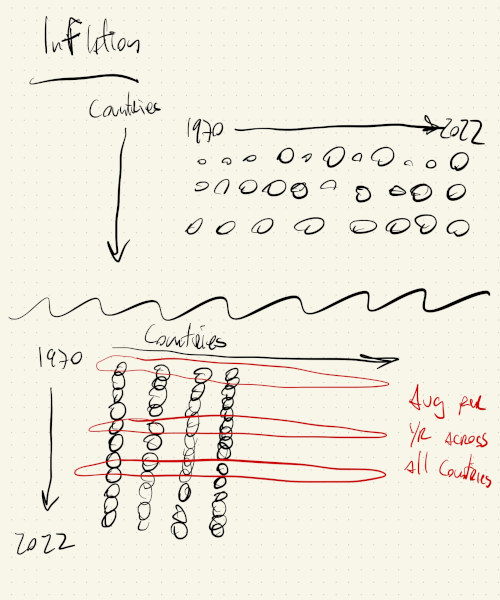 Inflation
Countries
1970 2022
Countries
1970
Avg per
YR across
all countries
2022